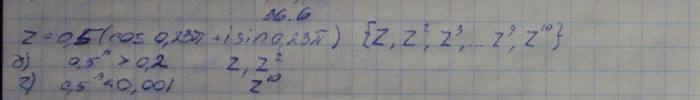 36.6
z = 0,5 (cos 0,23π + i sin 0,23π) {z, z², z³, ... z⁹, z¹⁰}
б) 0,5ⁿ > 0,2 z, z²
г) 0,5ⁿ < 0,001 z¹⁰